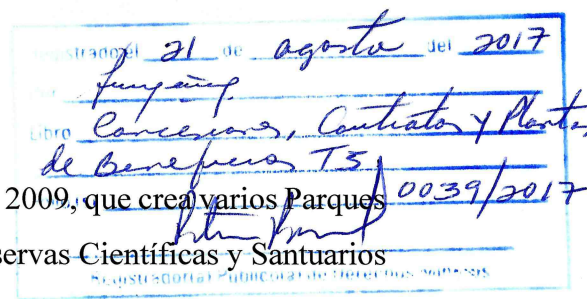 Registrado el 21 de agosto del 2017
Libro Concesiones, Contratos y Plantas
de Beneficios T5
2009, que crea varios Parques 0039/2017
servas Científicas y Santuarios
Registrador(a) Público(a) de Derechos Mineros